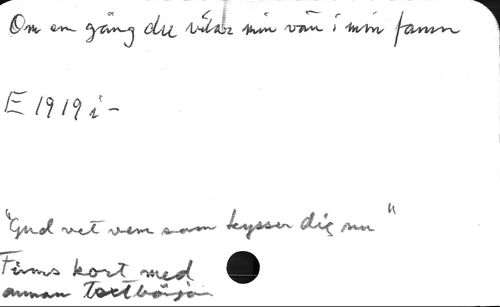 Om en gång du vilar min vän i min famn
E 1919 i -
"Gud vet vem som kysser dig nu"
Finns kort med
annan textbörjan